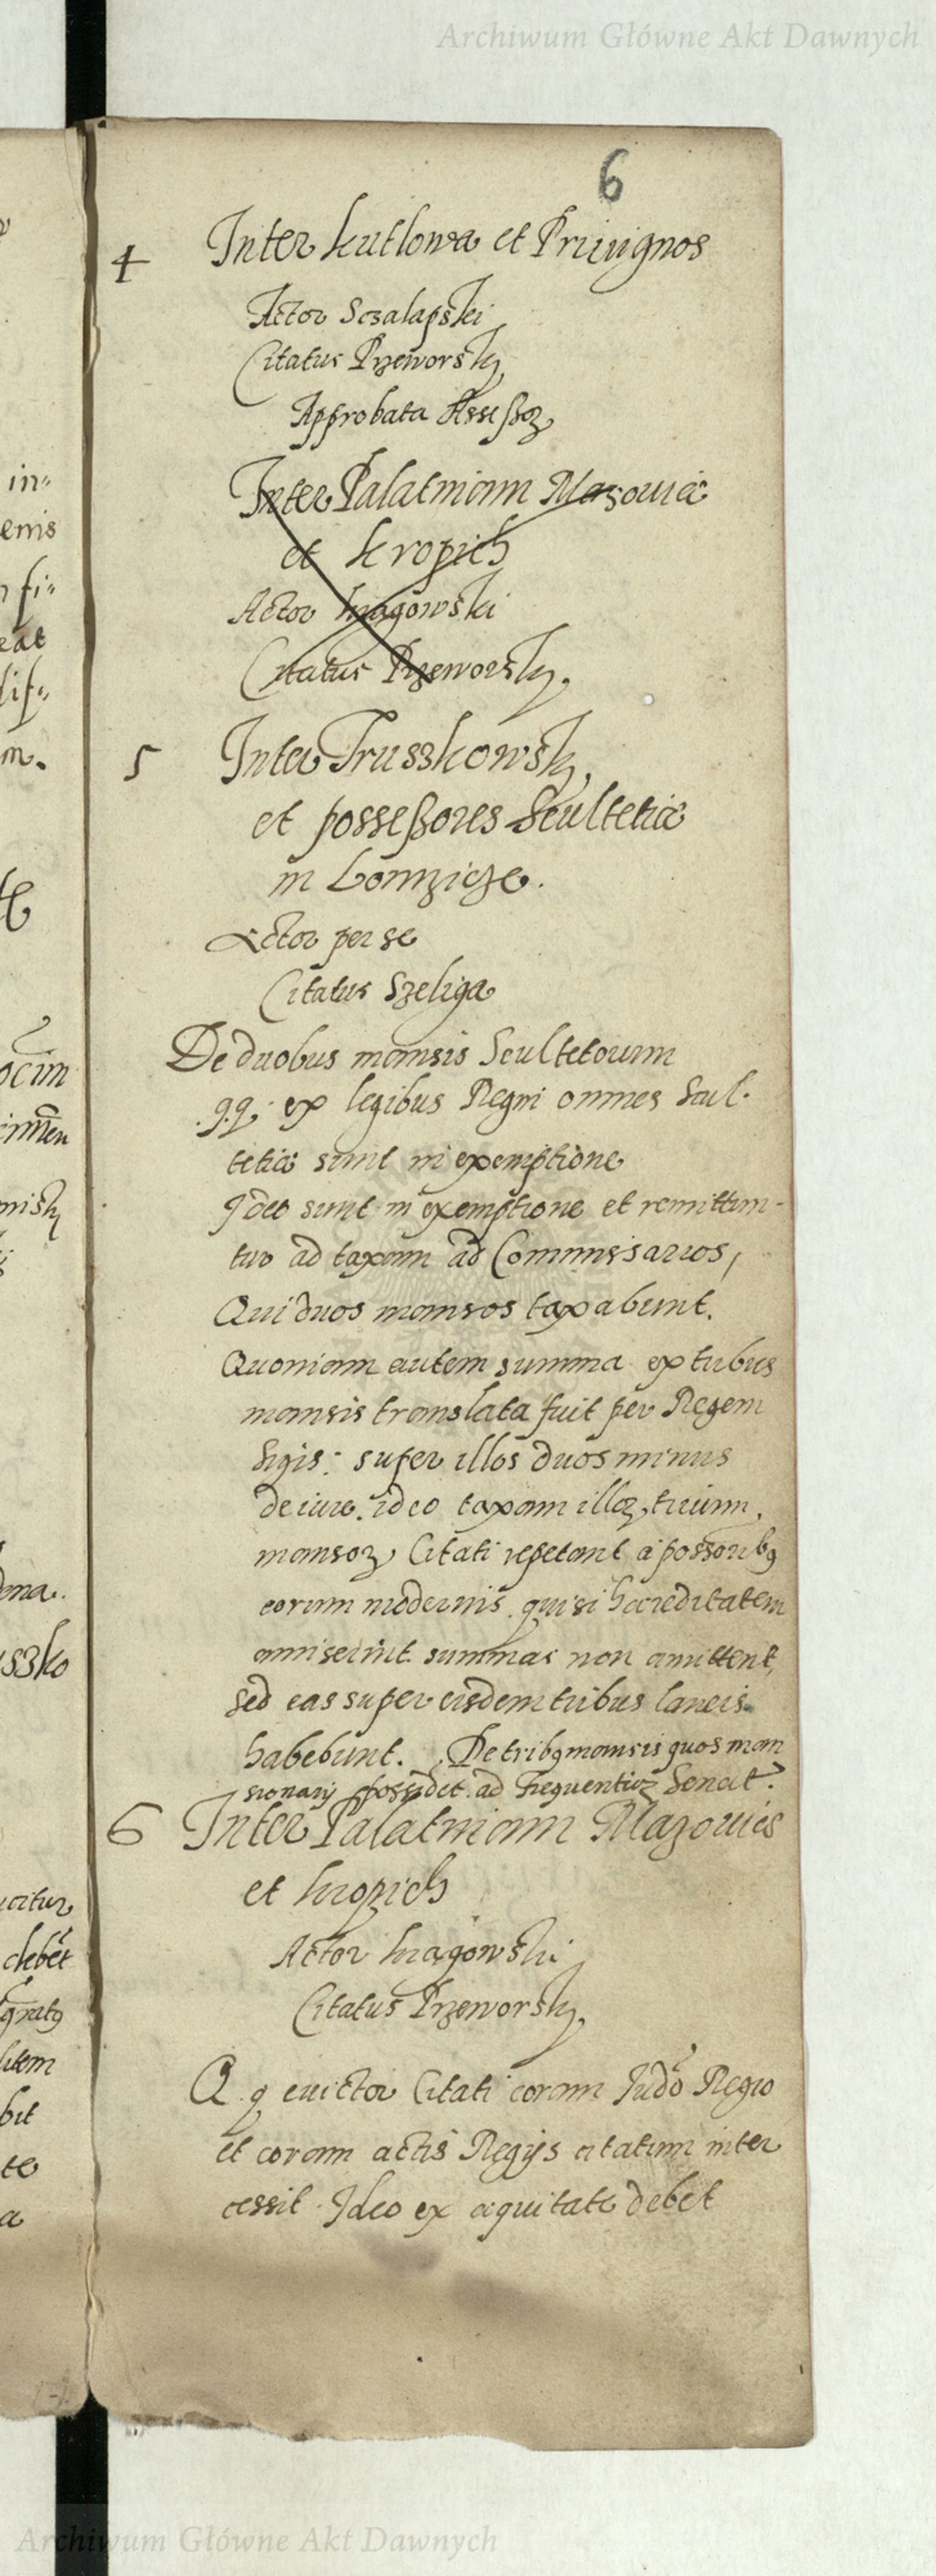 Archiwum Główne Akt Dawnych
6
4 Inter Kutlowa et Priuignos
Actor Sczalapski
Citatus Przeworsky
Approbata Assessor
Inter Palatinum Mazouiæ
et Kropich
Actor Kragowski
Citatus Przeworsky.
5 Inter Trusskowsky
et possessores Scultetiæ
in Lomzicze.
Actor per se
Citatus Szeliga
De duobus mansis Scultetorum
q.q. ex legibus Regni omnes Scul-
tetiæ sunt in exemptione
Ideo sunt in exemptione et remittun-
tur ad taxam ad Commissarios,
Qui duos mansos taxabunt.
Quoniam autem summa ex tribus
mansis translata fuit per Regem
Sigis: super illos duos minus
de iure. ideo taxam illor trium
mansor Citati repetant a possorib9
eorum modernis qui si hæreditatem
amiserint summas non amittent,
sed eas super eisdem tribus laneis
habebunt. De trib9 mansis quos man
sionarij possidet ad frequentior Senat.
6 Inter Palatinum Mazouiæ
et Kropich
Actor Kragowski
Citatus Przeworsky.
Q. q euictor Citati coram Judo Regio
et coram actis Regijs citatum inter
cessit. Ideo ex æquitate debet
in-
enis
fi-
eat
dif-
m.
ocim
nisky
ona.
sszko
debet
item
bit
te
a
Archiwum Główne Akt Dawnych